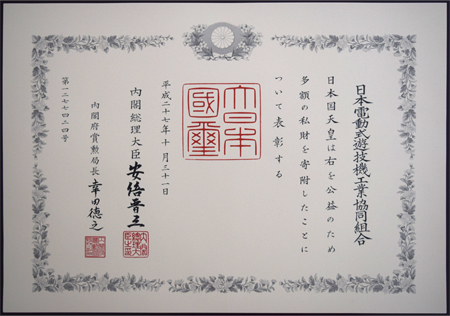 日本電動式遊技機工業協同組合
日本国天皇は右を公益のため
多額の私財を寄附したことに
ついて表彰する
大日本
國璽
平成二十七年十月三十一日
内閣総理大臣 安倍晋三
内閣府賞勲局長 幸田徳之
第一二七七四二四号